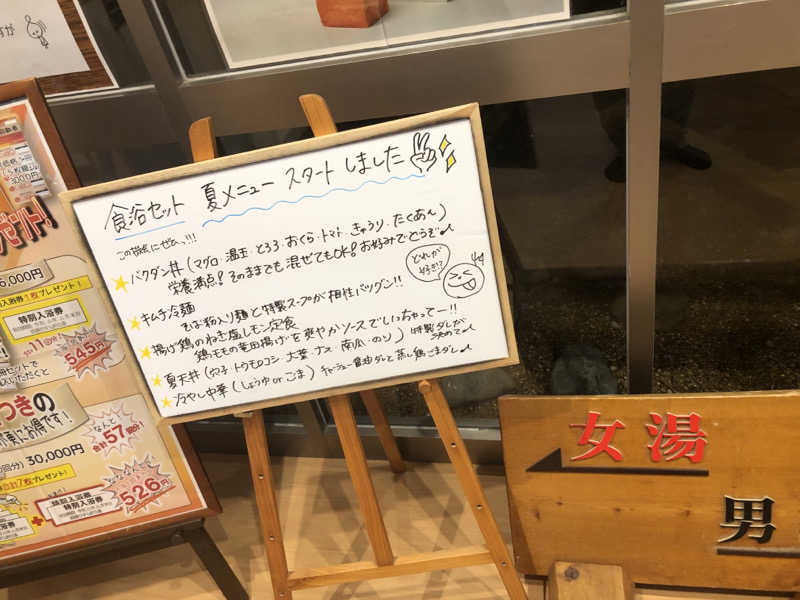 食浴セット 夏メニュー スタートしました
この機会にぜひっ!!!
バクダン丼(マグロ・温玉・とろろ・おくら・トマト・きゅうり・たくあん)
栄養満点! そのままでも混ぜてもOK! お好みでどうぞ♪
どれが好き!?
キムチ冷麺
そば粉入り麺と特製スープが相性バツグン!!
揚げ鶏のねぎ塩レモン定食
鶏モモの竜田揚げを爽やかソースでいっちゃってー!!
夏天丼(穴子・トウモロコシ・大葉・ナス・南瓜・のり) 特製ダレが決めて♪
冷やし中華(しょうゆorごま) チャーシュー醤油ダレと蒸し鶏ごまダレ♪
女湯
男
6,000円
入浴券1枚プレゼント!
特別入浴券
545円
つきの
お得です!
なんと
合計57個分!
30,000円
合計7枚プレゼント!
特別入浴券
特別入浴券
526円